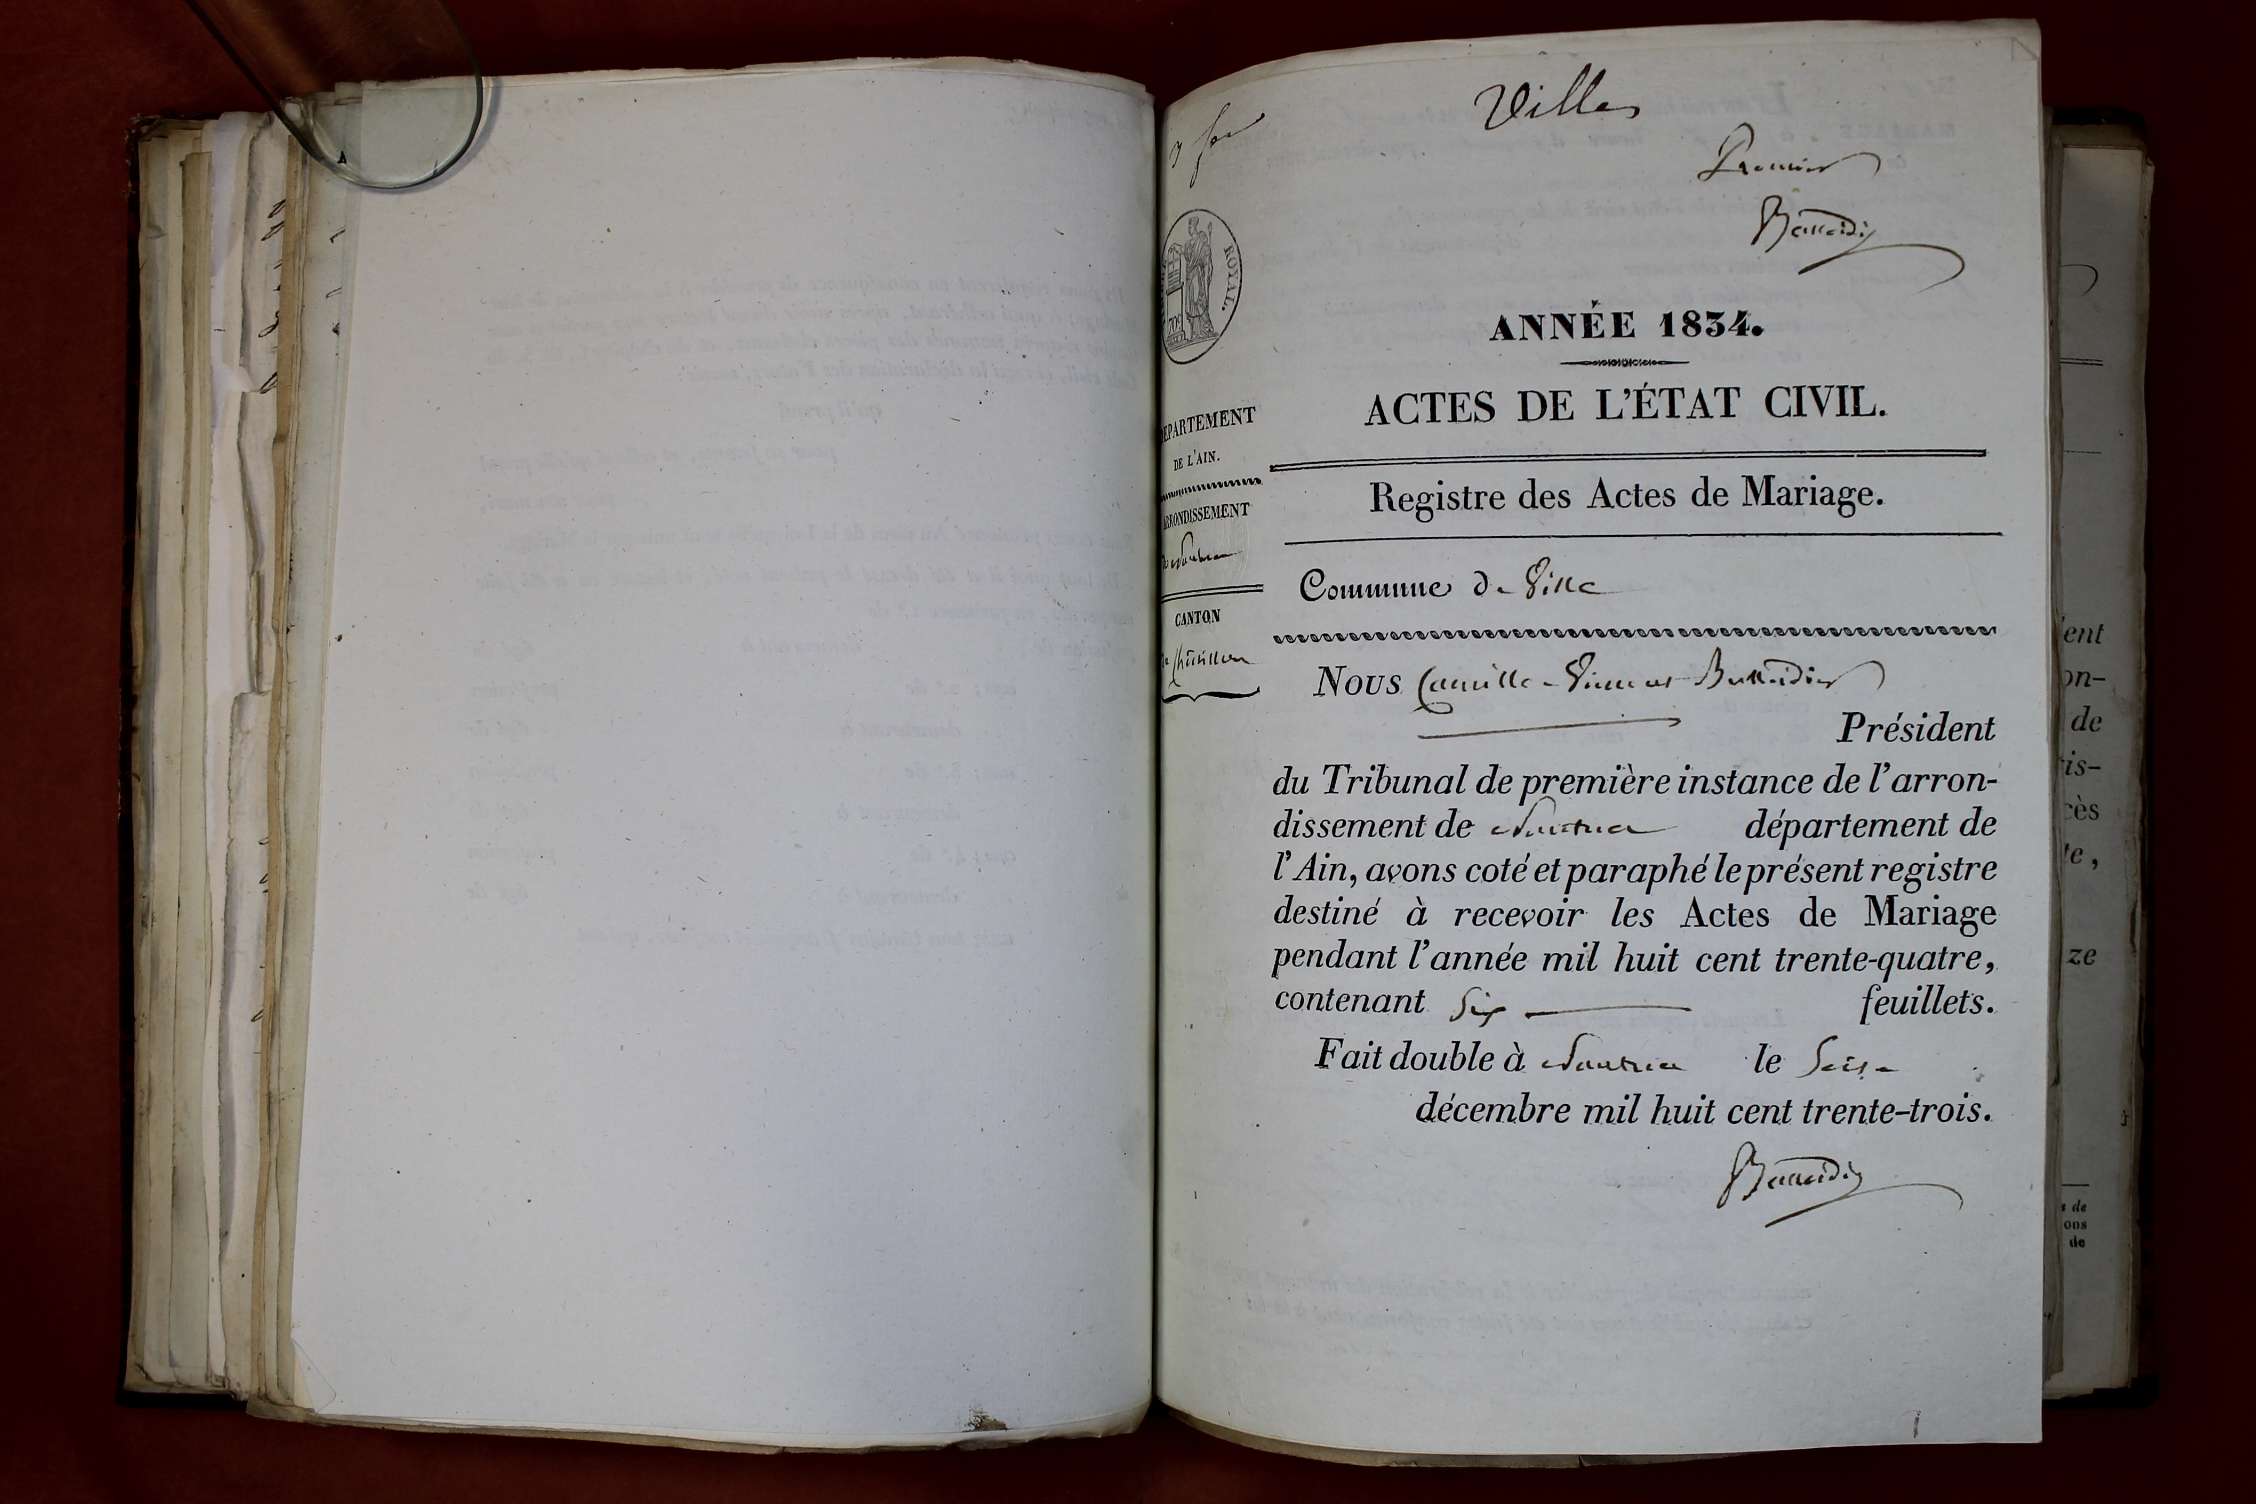 Villes
Premier
ROYAL.
ANNÉE 1834.
ACTES DE L'ÉTAT CIVIL.
EPARTEMENT
DE L'AIN.
Registre des Actes de Mariage.
RRONDISSEMENT
de Nantua
Commune de Ville
CANTON
de Châtillon
Nous Camille-Vincent
Président
du Tribunal de première instance de l'arron-
dissement de Nantua département de
l'Ain, avons coté et paraphé le présent registre
destiné à recevoir les Actes de Mariage
pendant l'année mil huit cent trente-quatre,
contenant six feuillets.
Fait double à Nantua le Seize
décembre mil huit cent trente-trois.
ent
on-
de
is-
cès
te,
ze
s de
ons
de